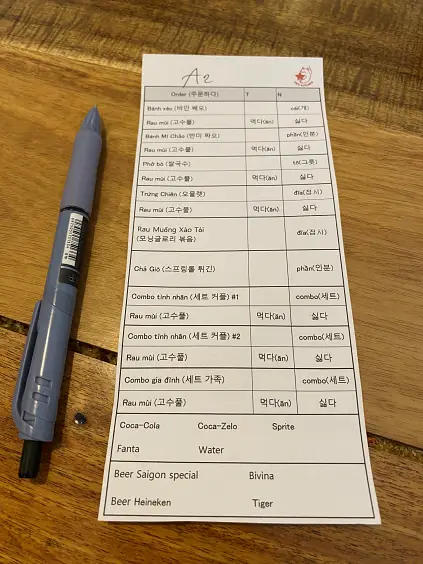 A2
Order (주문하다) T N
Bánh xèo (바인 쎄오) cái(개)
Rau mùi (고수풀) 먹다(ăn) 싫다
Bánh Mì Chảo (반미 짜오) phần(인분)
Rau mùi (고수풀) 먹다(ăn) 싫다
Phở bò (쌀국수) tô(그릇)
Rau mùi (고수풀) 먹다(ăn) 싫다
Trứng Chiên (오믈렛) đĩa(접시)
Rau mùi (고수풀) 먹다(ăn) 싫다
Rau Muống Xào Tỏi
(모닝글로리 볶음) đĩa(접시)
Chả Giò (스프링롤 튀긴) phần(인분)
Combo tình nhân (세트 커플) #1 combo(세트)
Rau mùi (고수풀) 먹다(ăn) 싫다
Combo tình nhân (세트 커플) #2 combo(세트)
Rau mùi (고수풀) 먹다(ăn) 싫다
Combo gia đình (세트 가족) combo(세트)
Rau mùi (고수풀) 먹다(ăn) 싫다
Coca-Cola Coca-Zelo Sprite
Fanta Water
Beer Saigon special Bivina
Beer Heineken Tiger